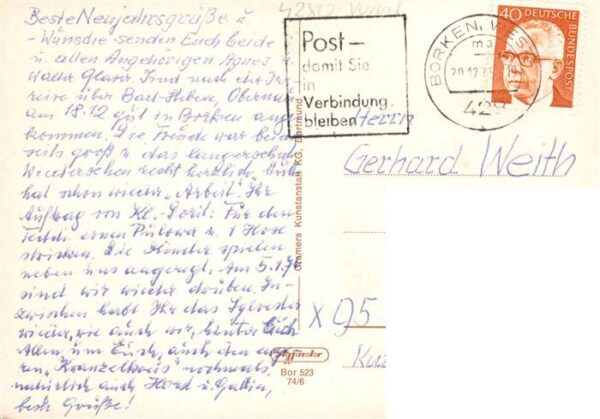 Beste Neujahrsgrüße u.
- Wünsche senden Euch beide
u. allen Angehörigen Agnes u.
Walter Glaser. Sind nach der
reise über Bad-Steben,
am 18.12 gut in Borken ange
kommen. Die Freude war beider
seits groß u. das langersehnte
Wiedersehen recht herzlich.
hat schon wieder „Arbeit". Ihr
Auftrag von Kl.-Dorit: Für den
Teddi einen Pulower u. 1 Hose
stricken. Die Kinder spielen
neben uns angeregt. Am 5.1.
sind wir wieder drüben. In-
zwischen habt Ihr das Sylvester
wieder, wie auch wir, hinter Euch
Allen, um Euch, auch den
„Kränzelkreis" nochmals,
natürlich auch Horst u. Gattin,
beste Grüße!
Post –
damit Sie
in
Verbindung
bleiben
BORKEN, WESTF
ma
428
40 DEUTSCHE
BUNDESPOST
Herrn
Gerhard Weith
X 95
Cramers Kunstanstalt KG, Dortmund
Bor 523
74/6